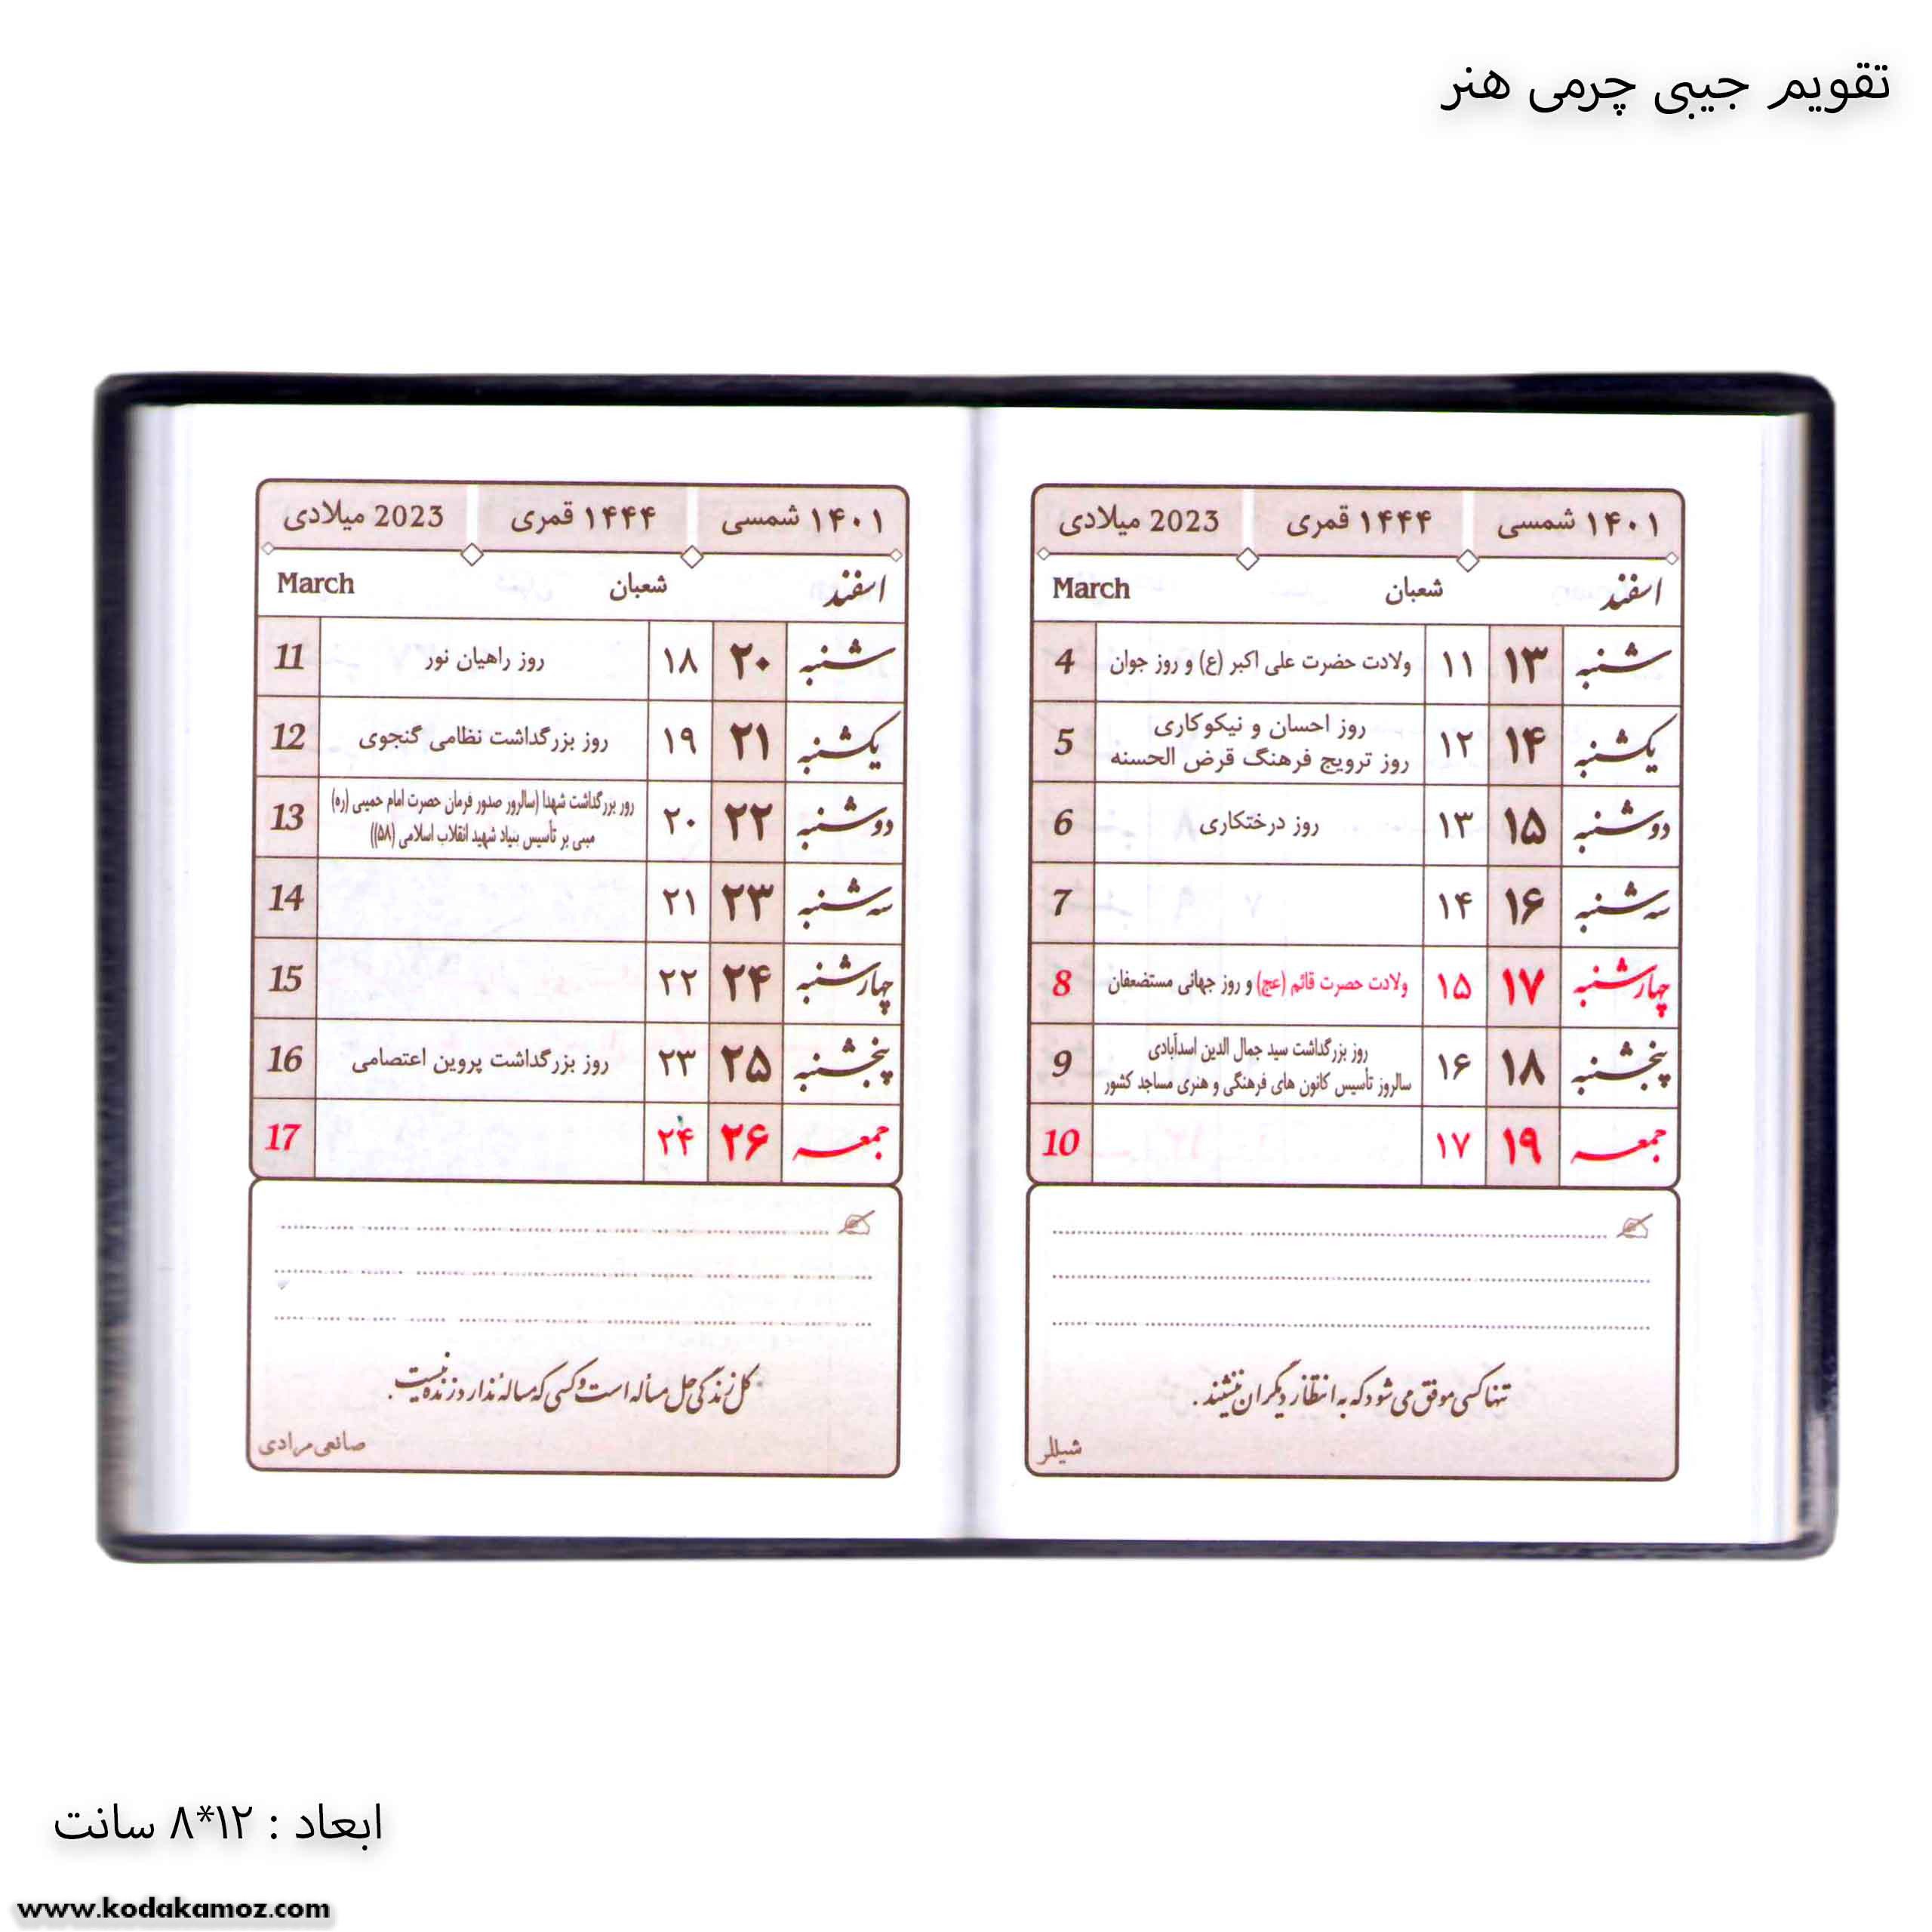 تقویم جیبی چرمی هنر
۱۴۰۱ شمسی ۱۴۴۴ قمری 2023 میلادی
اسفند شعبان March
شنبه ۱۳ ۱۱ ولادت حضرت علی اکبر (ع) و روز جوان 4
یکشنبه ۱۴ ۱۲ روز احسان و نیکوکاری 5
روز ترویج فرهنگ قرض الحسنه
دوشنبه ۱۵ ۱۳ روز درختکاری 6
سه شنبه ۱۶ ۱۴ 7
چهارشنبه ۱۷ ۱۵ ولادت حضرت قائم (عج) و روز جهانی مستضعفان 8
پنجشنبه ۱۸ ۱۶ روز بزرگداشت سید جمال الدین اسدآبادی 9
سالروز تأسیس کانون های فرهنگی و هنری مساجد کشور
جمعه ۱۹ ۱۷ 10
تنها کسی موفق می شود که به انتظار دیگران ننشیند.
شیللر
۱۴۰۱ شمسی ۱۴۴۴ قمری 2023 میلادی
اسفند شعبان March
شنبه ۲۰ ۱۸ روز راهیان نور 11
یکشنبه ۲۱ ۱۹ روز بزرگداشت نظامی گنجوی 12
دوشنبه ۲۲ ۲۰ روز بزرگداشت شهدا (سالروز صدور فرمان حضرت امام خمینی (ره) 13
مبنی بر تأسیس بنیاد شهید انقلاب اسلامی (۵۸))
سه شنبه ۲۳ ۲۱ 14
چهارشنبه ۲۴ ۲۲ 15
پنجشنبه ۲۵ ۲۳ روز بزرگداشت پروین اعتصامی 16
جمعه ۲۶ ۲۴ 17
کل زندگی حل مسأله است و کسی که مساله ندارد زنده نیست.
صانعی مرادی
ابعاد : ۱۲*۸ سانت
www.kodakamoz.com